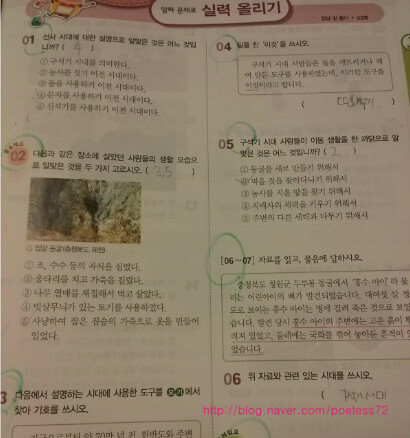 알짜 문제로 실력 올리기
01 선사 시대에 대한 설명으로 알맞은 것은 어느 것입
니까? ( 4 )
① 구석기 시대를 의미한다.
② 농사를 짓기 이전 시대이다.
③ 돌을 사용하기 이전 시대이다.
④ 문자를 사용하기 이전 시대이다.
⑤ 신석기를 사용하기 이전 시대이다.
02 다음과 같은 장소에 살았던 사람들의 생활 모습으
로 알맞은 것을 두 가지 고르시오. ( 3,5 )
동굴(충청북도 제천)
① 조, 수수 등의 곡식을 심었다.
② 울타리를 치고 가축을 길렀다.
③ 나무 열매를 채집해서 먹고 살았다.
④ 빗살무늬가 있는 토기를 사용하였다.
⑤ 사냥하여 잡은 짐승의 가죽으로 옷을 만들어
입었다.
3 다음에서 설명하는 시대에 사용한 도구를 보기에서
찾아 기호를 쓰시오.
지금으로부터 약 70만 년 전, 한반도와 주변
04 밑줄 친 '이것'을 쓰시오.
구석기 시대 사람들은 돌을 깨뜨리거나 떼
어 만든 도구를 사용하였는데, 이러한 도구를
이것이라고 합니다.
05 구석기 시대 사람들이 이동 생활을 한 까닭으로 알
맞은 것은 어느 것입니까? ( 2 )
① 동굴을 새로 만들기 위해서
② 먹을 것을 찾아다니기 위해서
③ 농사를 지을 땅을 찾기 위해서
④ 지배자의 세력을 키우기 위해서
⑤ 주변의 다른 세력과 다투기 위해서
[06~07] 자료를 읽고, 물음에 답하시오.
충청북도 청원군 두루봉 동굴에서 '흥수 아이'라 불
리는 어린아이의 뼈가 발견되었습니다. 대여섯 살 정
도로 보이는 흥수 아이는 병에 걸려 죽은 것으로 보였
습니다. 발견 당시 흥수 아이의 주변에는 고운 흙이 뿌
려져 있었고, 둘레에는 국화를 꺾어 놓아둔 흔적이 있
었습니다.
06 위 자료와 관련 있는 시대를 쓰시오.
구석기 시대
http://blog.naver.com/poetess72